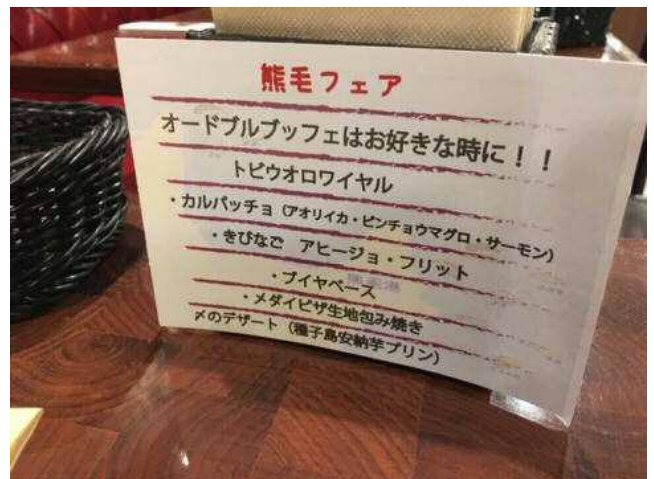 熊毛フェア
オードブルブッフェはお好きな時に！！
トビウオロワイヤル
・カルパッチョ（アオリイカ・ビンチョウマグロ・サーモン）
・きびなご　アヒージョ・フリット
・ブイヤベース
・メダイピザ生地包み焼き
〆のデザート（種子島安納芋プリン）